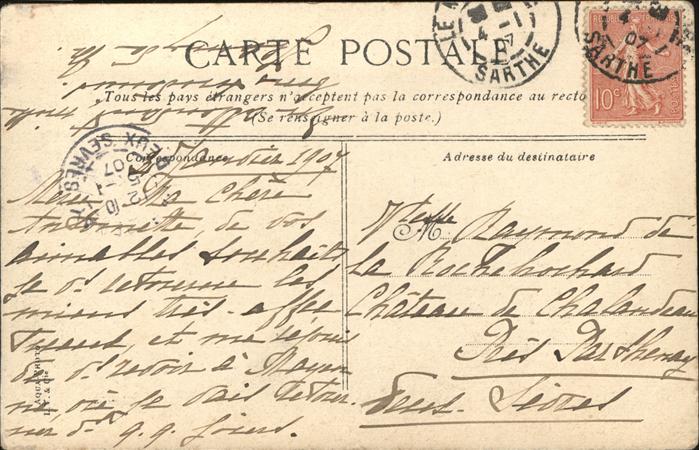 CARTE POSTALE
Tous les pays étrangers n'acceptent pas la correspondance au recto
(Se renseigner à la poste.)
Correspondance
Adresse du destinataire
LE
4 -1
07
SARTHE
4
07
SARTHE
10c
SÈVRES
07
Janvier 1907
Merci Ma chère
Antoinette, de vos
aimables souhaits
je vs retourne les
miens très affec
tueux, et me réjouis
de vs revoir à Mayen
ne où je vais retour
ner ds q.q. jours.
Vtesse Raymond de
La Rochechouard
Château de Chalandeau
Près Parthenay
Deux-Sèvres
AQUA-PHOTO